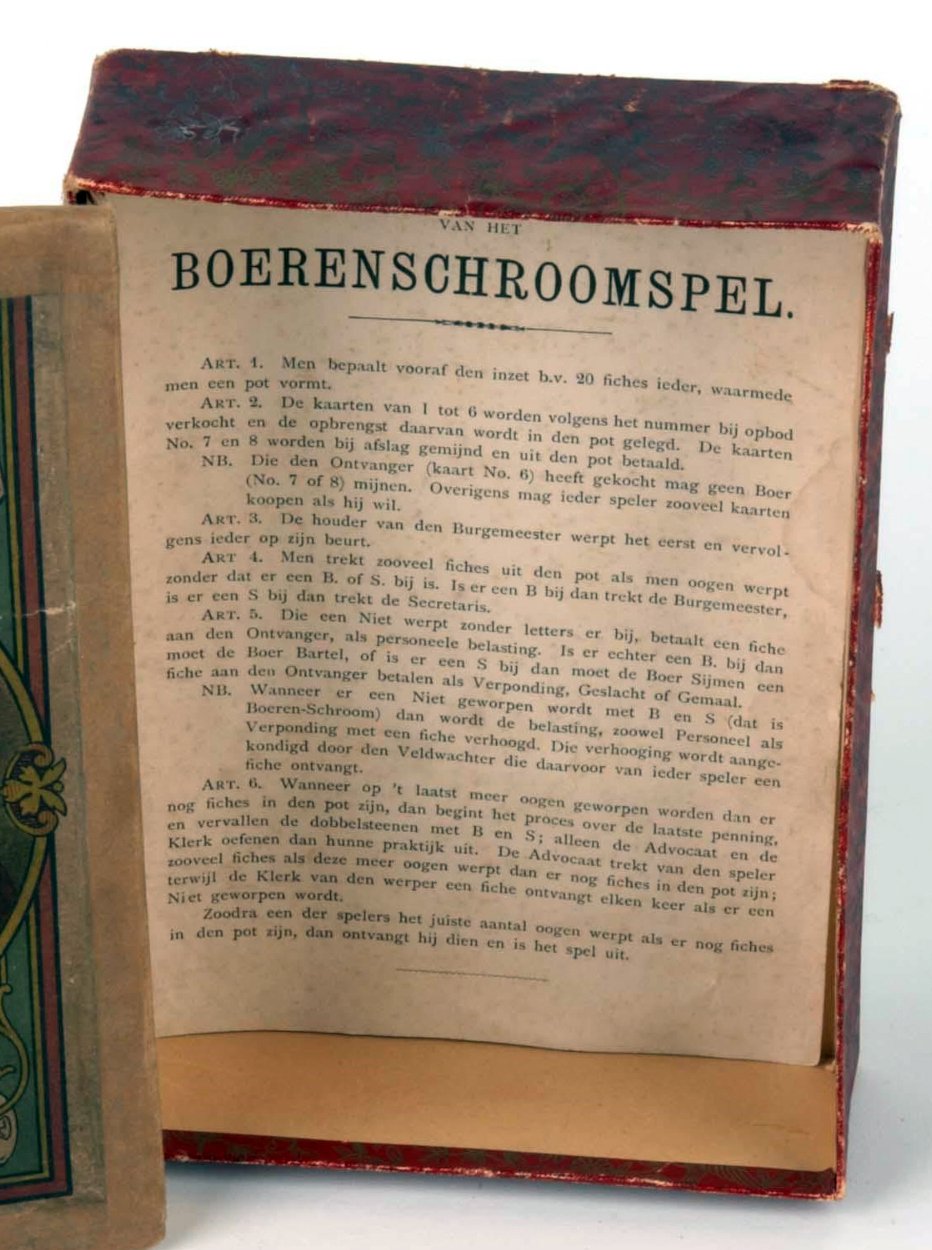 VAN HET
BOERENSCHROOMSPEL.
ART. 1. Men bepaalt vooraf den inzet b.v. 20 fiches ieder, waarmede
men een pot vormt.
ART. 2. De kaarten van 1 tot 6 worden volgens het nummer bij opbod
verkocht en de opbrengst daarvan wordt in den pot gelegd. De kaarten
No. 7 en 8 worden bij afslag gemijnd en uit den pot betaald.
NB. Die den Ontvanger (kaart No. 6) heeft gekocht mag geen Boer
(No. 7 of 8) mijnen. Overigens mag ieder speler zooveel kaarten
koopen als hij wil.
ART. 3. De houder van den Burgemeester werpt het eerst en vervol-
gens ieder op zijn beurt.
ART 4. Men trekt zooveel fiches uit den pot als men oogen werpt
zonder dat er een B. of S. bij is. Is er een B bij dan trekt de Burgemeester,
is er een S bij dan trekt de Secretaris.
ART. 5. Die een Niet werpt zonder letters er bij, betaalt een fiche
aan den Ontvanger, als personeele belasting. Is er echter een B. bij dan
moet de Boer Bartel, of is er een S bij dan moet de Boer Sijmen een
fiche aan den Ontvanger betalen als Verponding, Geslacht of Gemaal.
NB. Wanneer er een Niet geworpen wordt met B en S (dat is
Boeren-Schroom) dan wordt de belasting, zoowel Personeel als
Verponding met een fiche verhoogd. Die verhooging wordt aange-
kondigd door den Veldwachter die daarvoor van ieder speler een
fiche ontvangt.
ART. 6. Wanneer op 't laatst meer oogen geworpen worden dan er
nog fiches in den pot zijn, dan begint het proces over de laatste penning,
en vervallen de dobbelsteenen met B en S; alleen de Advocaat en de
Klerk oefenen dan hunne praktijk uit. De Advocaat trekt van den speler
zooveel fiches als deze meer oogen werpt dan er nog fiches in den pot zijn;
terwijl de Klerk van den werper een fiche ontvangt elken keer als er een
Niet geworpen wordt.
Zoodra een der spelers het juiste aantal oogen werpt als er nog fiches
in den pot zijn, dan ontvangt hij dien en is het spel uit.